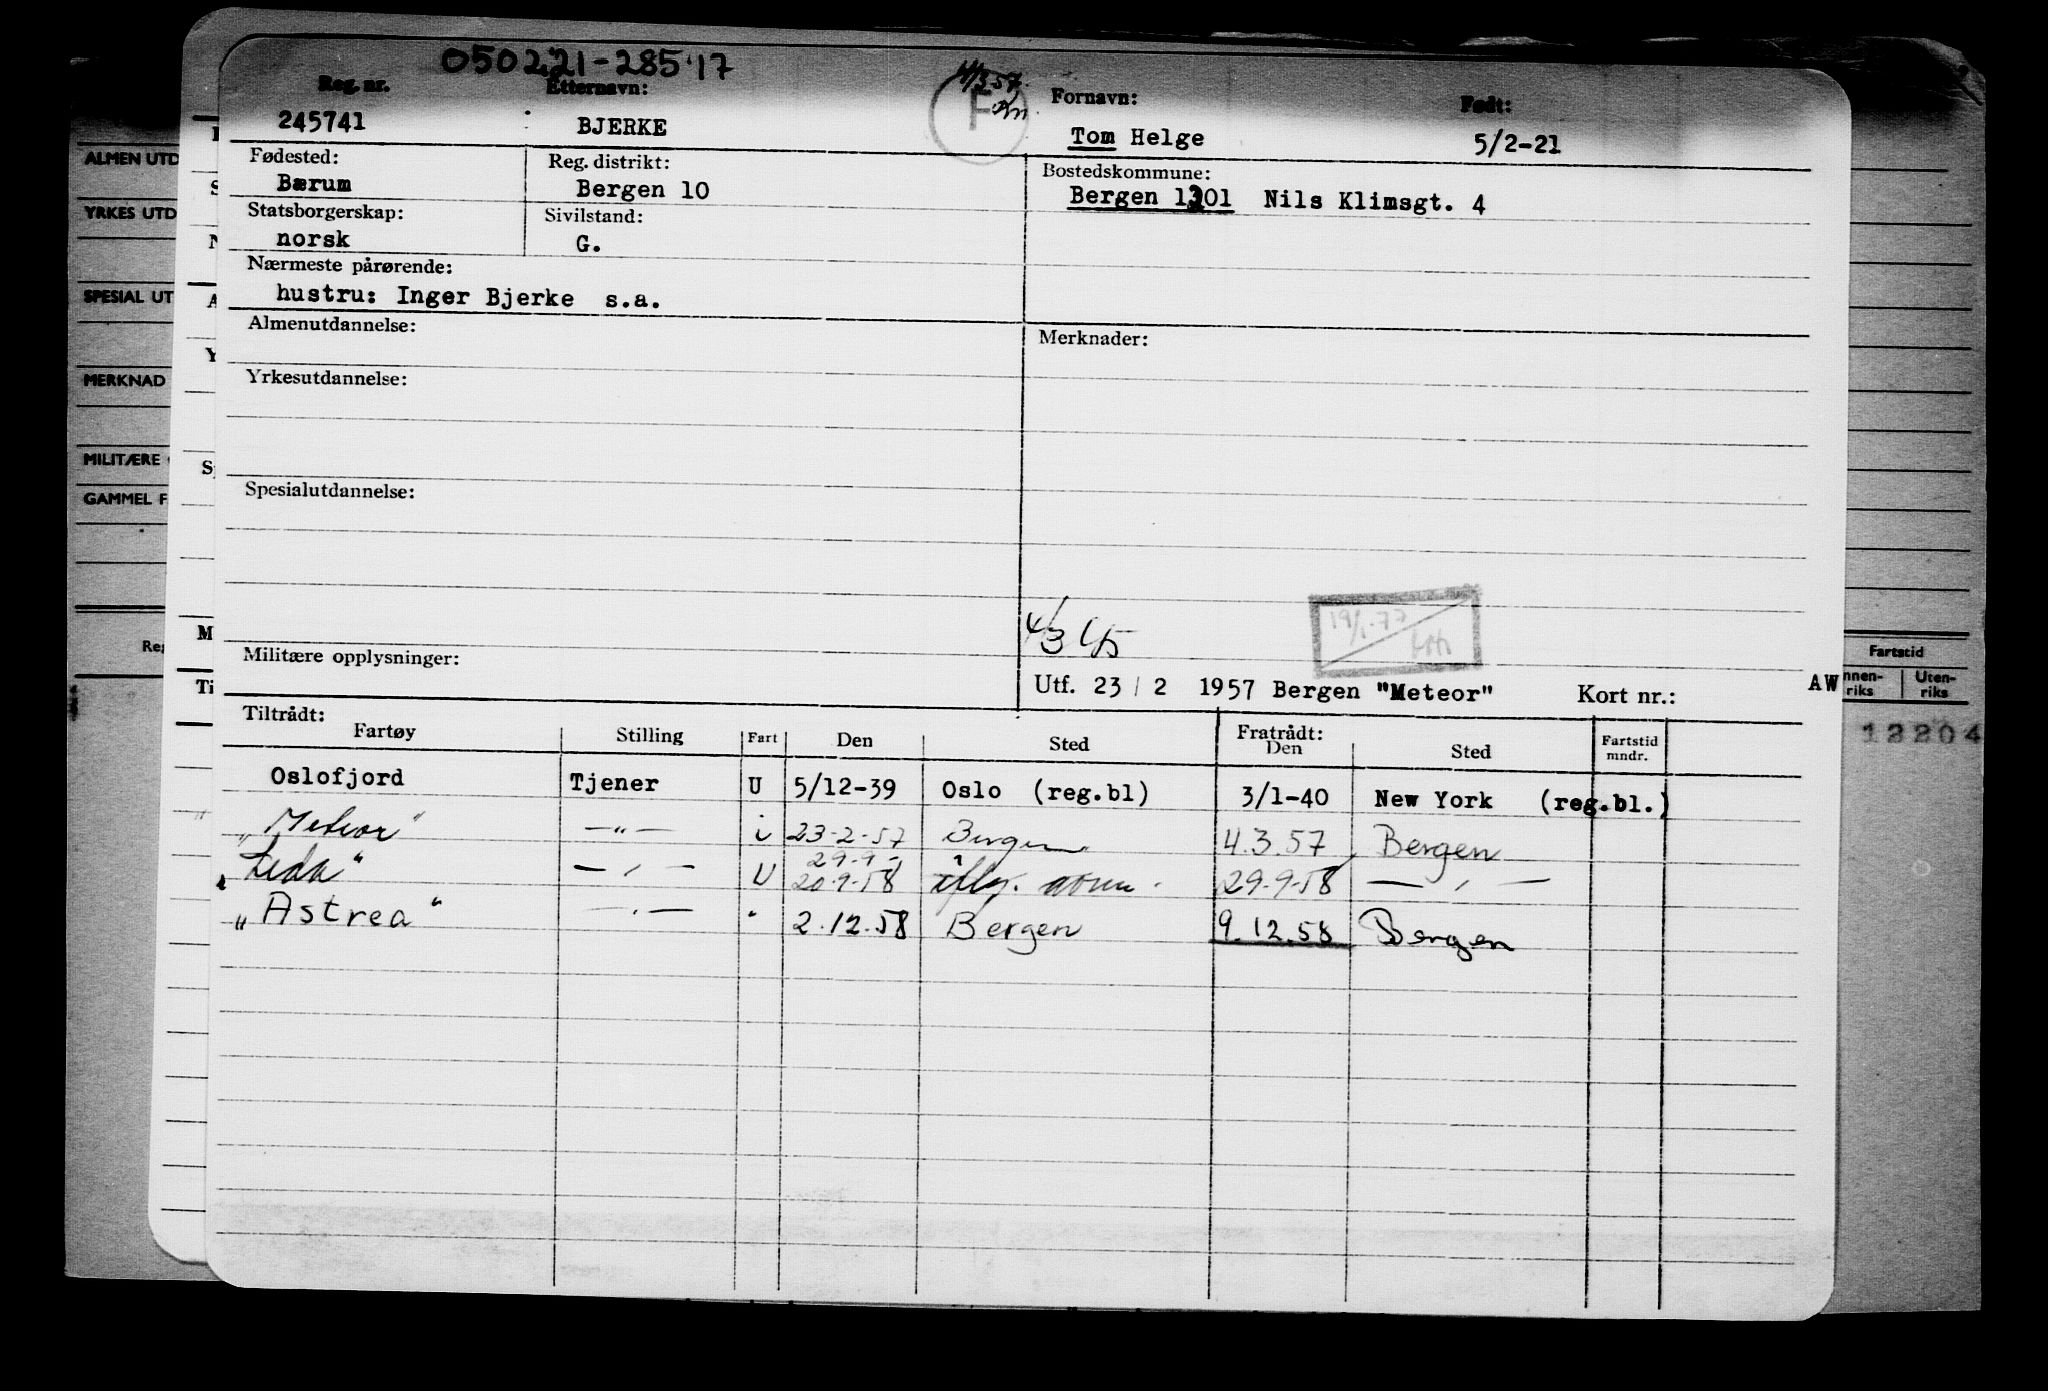 050221-28517
Reg. nr. Etternavn: 4/3 57. Fornavn: Født:
245741 BJERKE F Tom Helge 5/2-21
Fødested: Reg. distrikt: Bostedskommune:
Bærum Bergen 10 Bergen 1301 Nils Klimsgt. 4
Statsborgerskap: Sivilstand:
norsk G.
Nærmeste pårørende:
hustru: Inger Bjerke s.a.
Almenutdannelse: Merknader:
Yrkesutdannelse:
Spesialutdannelse:
4/3
19/1-77
Militære opplysninger:
Utf. 23/2 1957 Bergen "Meteor" Kort nr.:
Tiltrådt: Fratrådt:
Fartøy Stilling Fart Den Sted Den Sted Fartstid mndr.
Oslofjord Tjener U 5/12-39 Oslo (reg.bl) 3/1-40 New York (reg.bl.)
"Meteor" —"— i 23-2-57 Bergen 4.3.57 Bergen
29-9-
"Leda" — " — U 20-9-58 29-9-58 — " —
"Astrea" — " — " 2.12.58 Bergen 9.12.58 Bergen
ALMEN UTD
YRKES UTD
SPESIAL UT
MERKNAD
MILITÆRE
GAMMEL F
Reg
M
Ti
AW
Fartstid
nnen-riks Uten-riks
12204